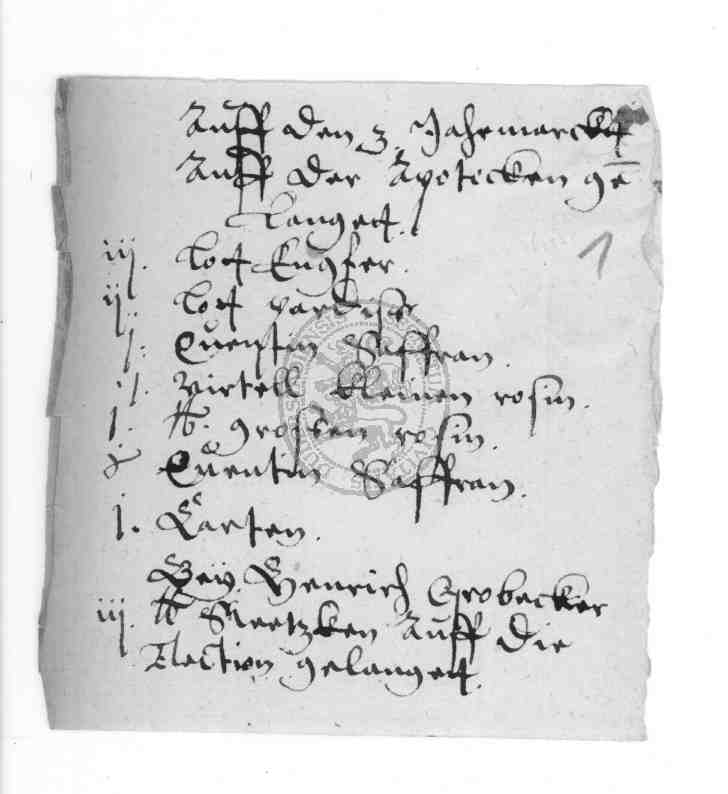 Auff den 3. Jahrmarckt
Auff der Apotecken ge
langet.
iij. lott Engfer.
ij. lott pardiß
j. Quentin Saffran.
ij. virtell kleinen rosin.
j. ℔. grossen rosin.
Quentin Saffran.
j. Carten.
Bey Henrich Grobecker
iij ℔ Auff die
Election gelanget.
1